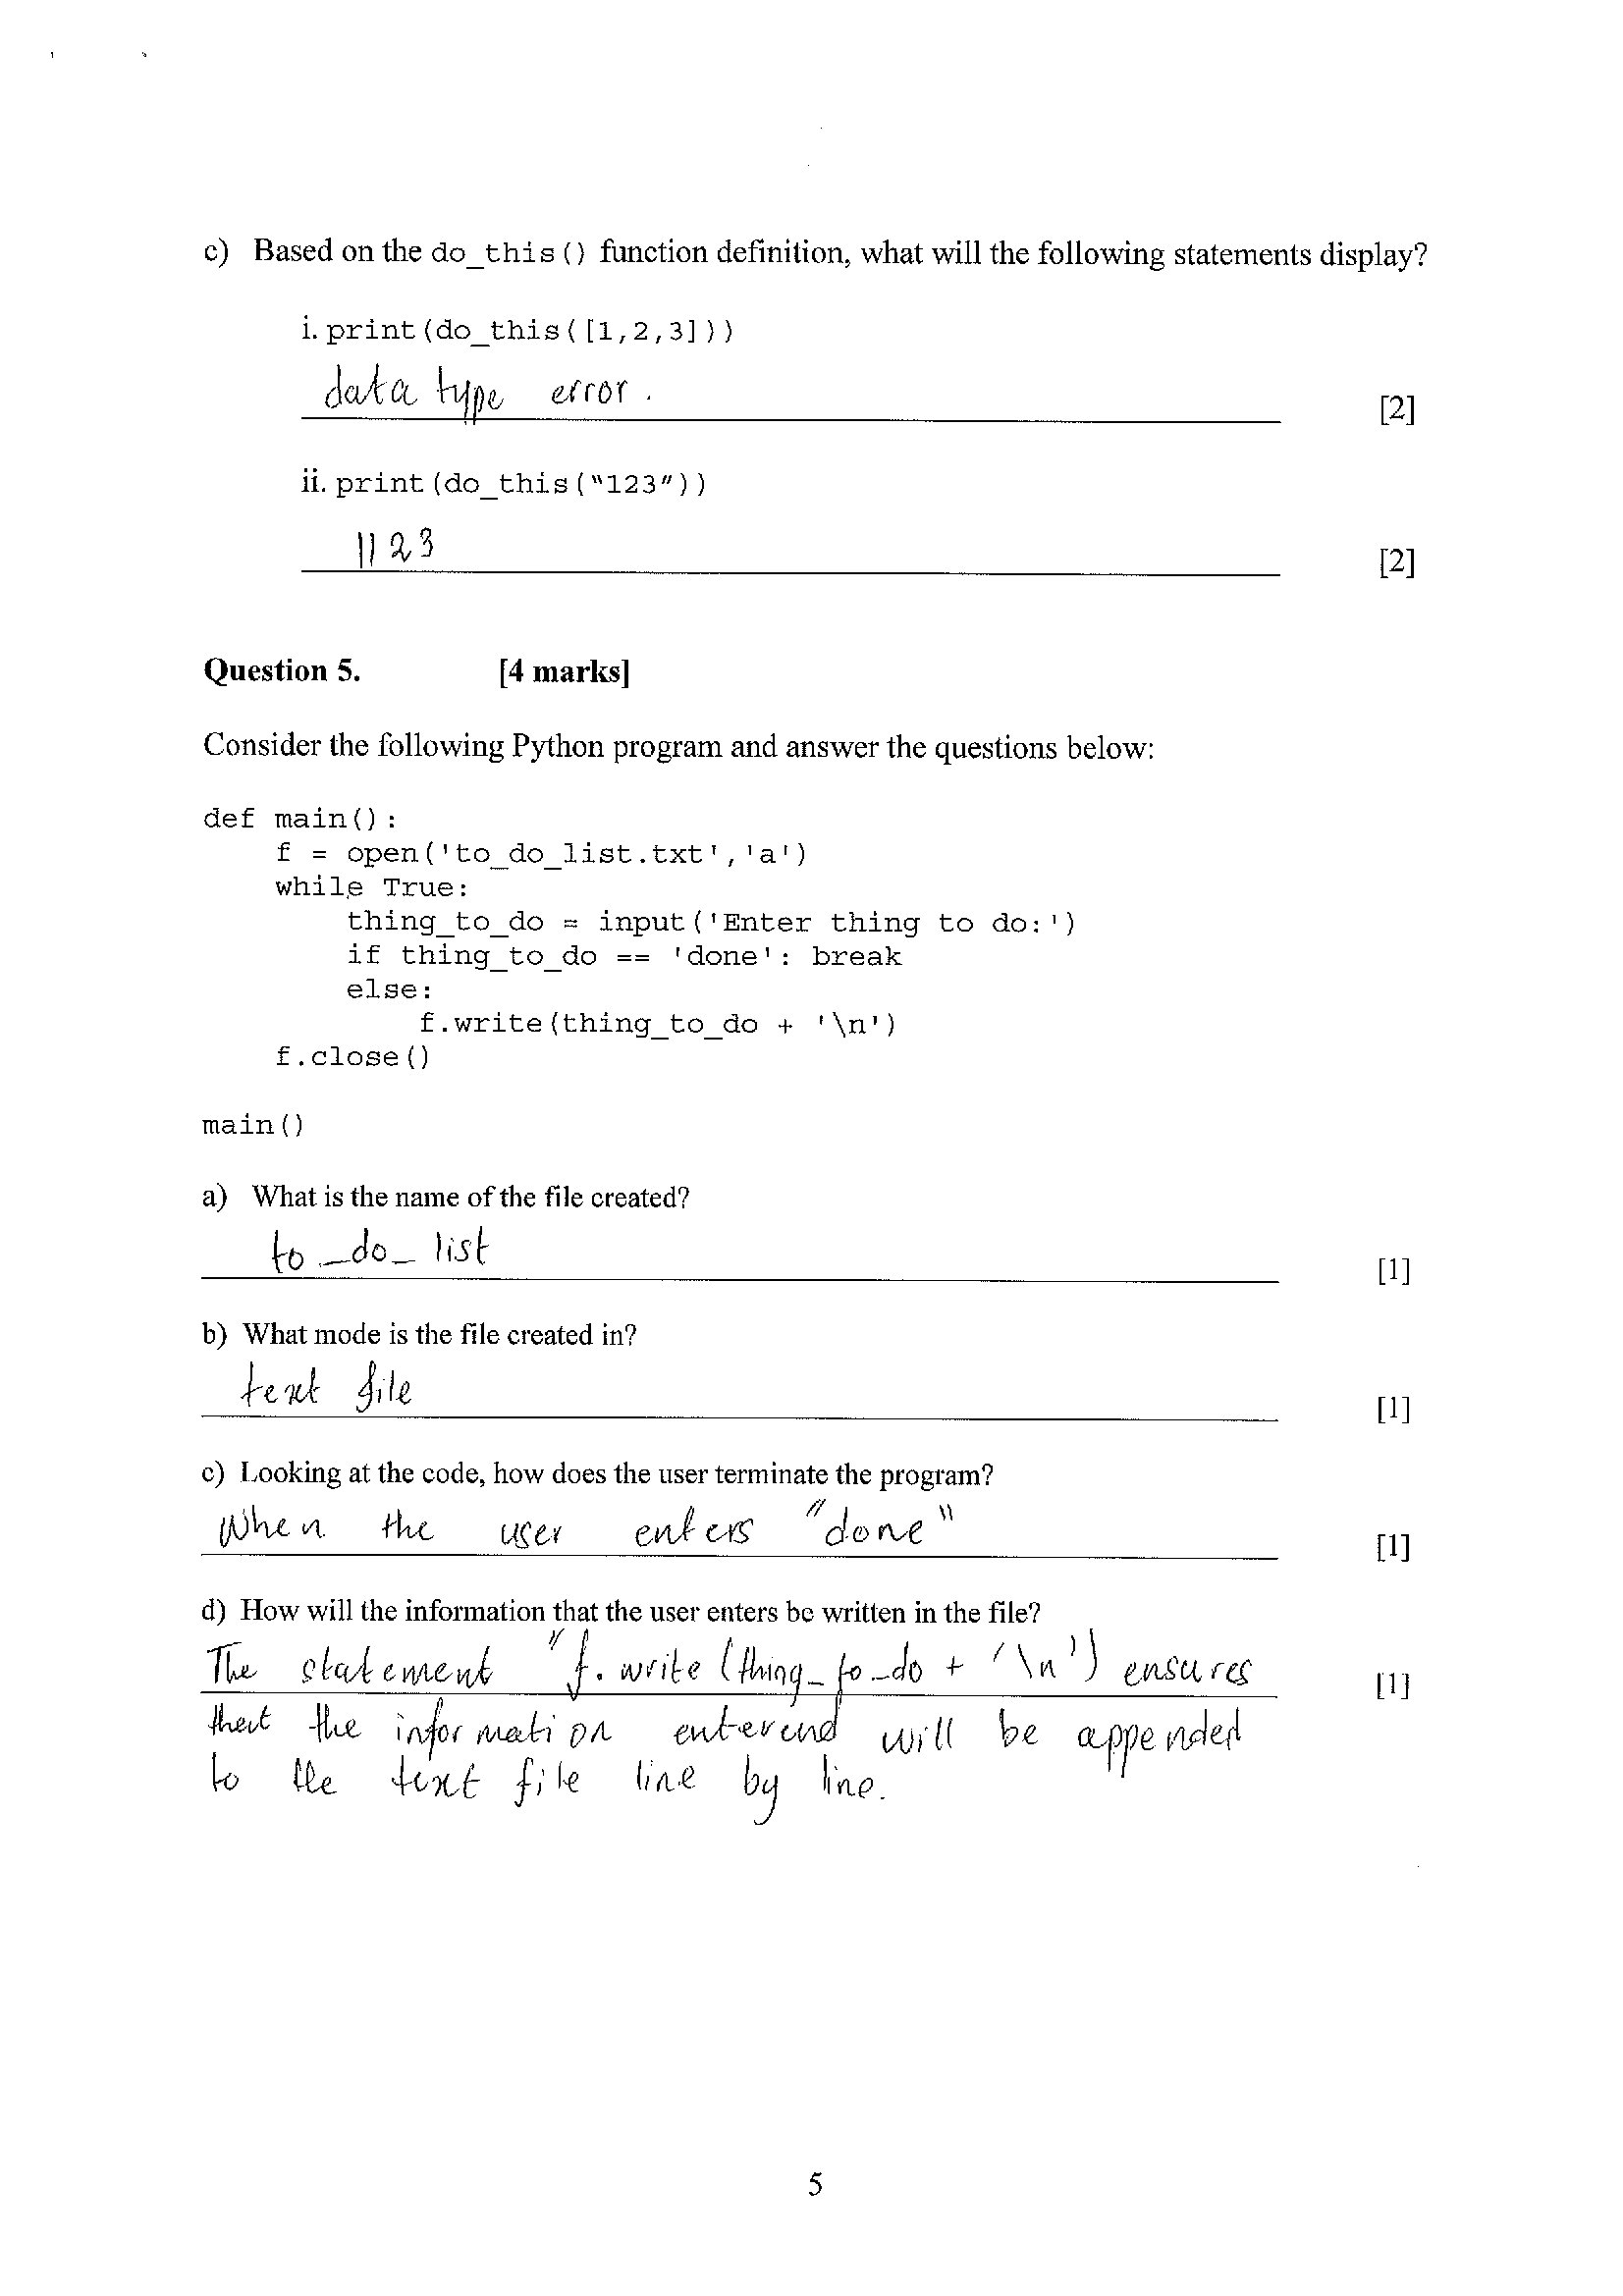 c) Based on the do_this() function definition, what will the following statements display?
i. print(do_this([1,2,3]))
data type error.
[2]
ii. print(do_this(“123”))
1123
[2]
Question 5. [4 marks]
Consider the following Python program and answer the questions below:
def main():
    f = open('to_do_list.txt','a')
    while True:
        thing_to_do = input('Enter thing to do:')
        if thing_to_do == 'done': break
        else:
            f.write(thing_to_do + '\n')
    f.close()
main()
a) What is the name of the file created?
to_do_list
[1]
b) What mode is the file created in?
text file
[1]
c) Looking at the code, how does the user terminate the program?
When the user enters "done"
[1]
d) How will the information that the user enters be written in the file?
The statement "f.write(thing_to_do + '\n') ensures
[1]
that the information enterend will be appended
to the text file line by line.
5